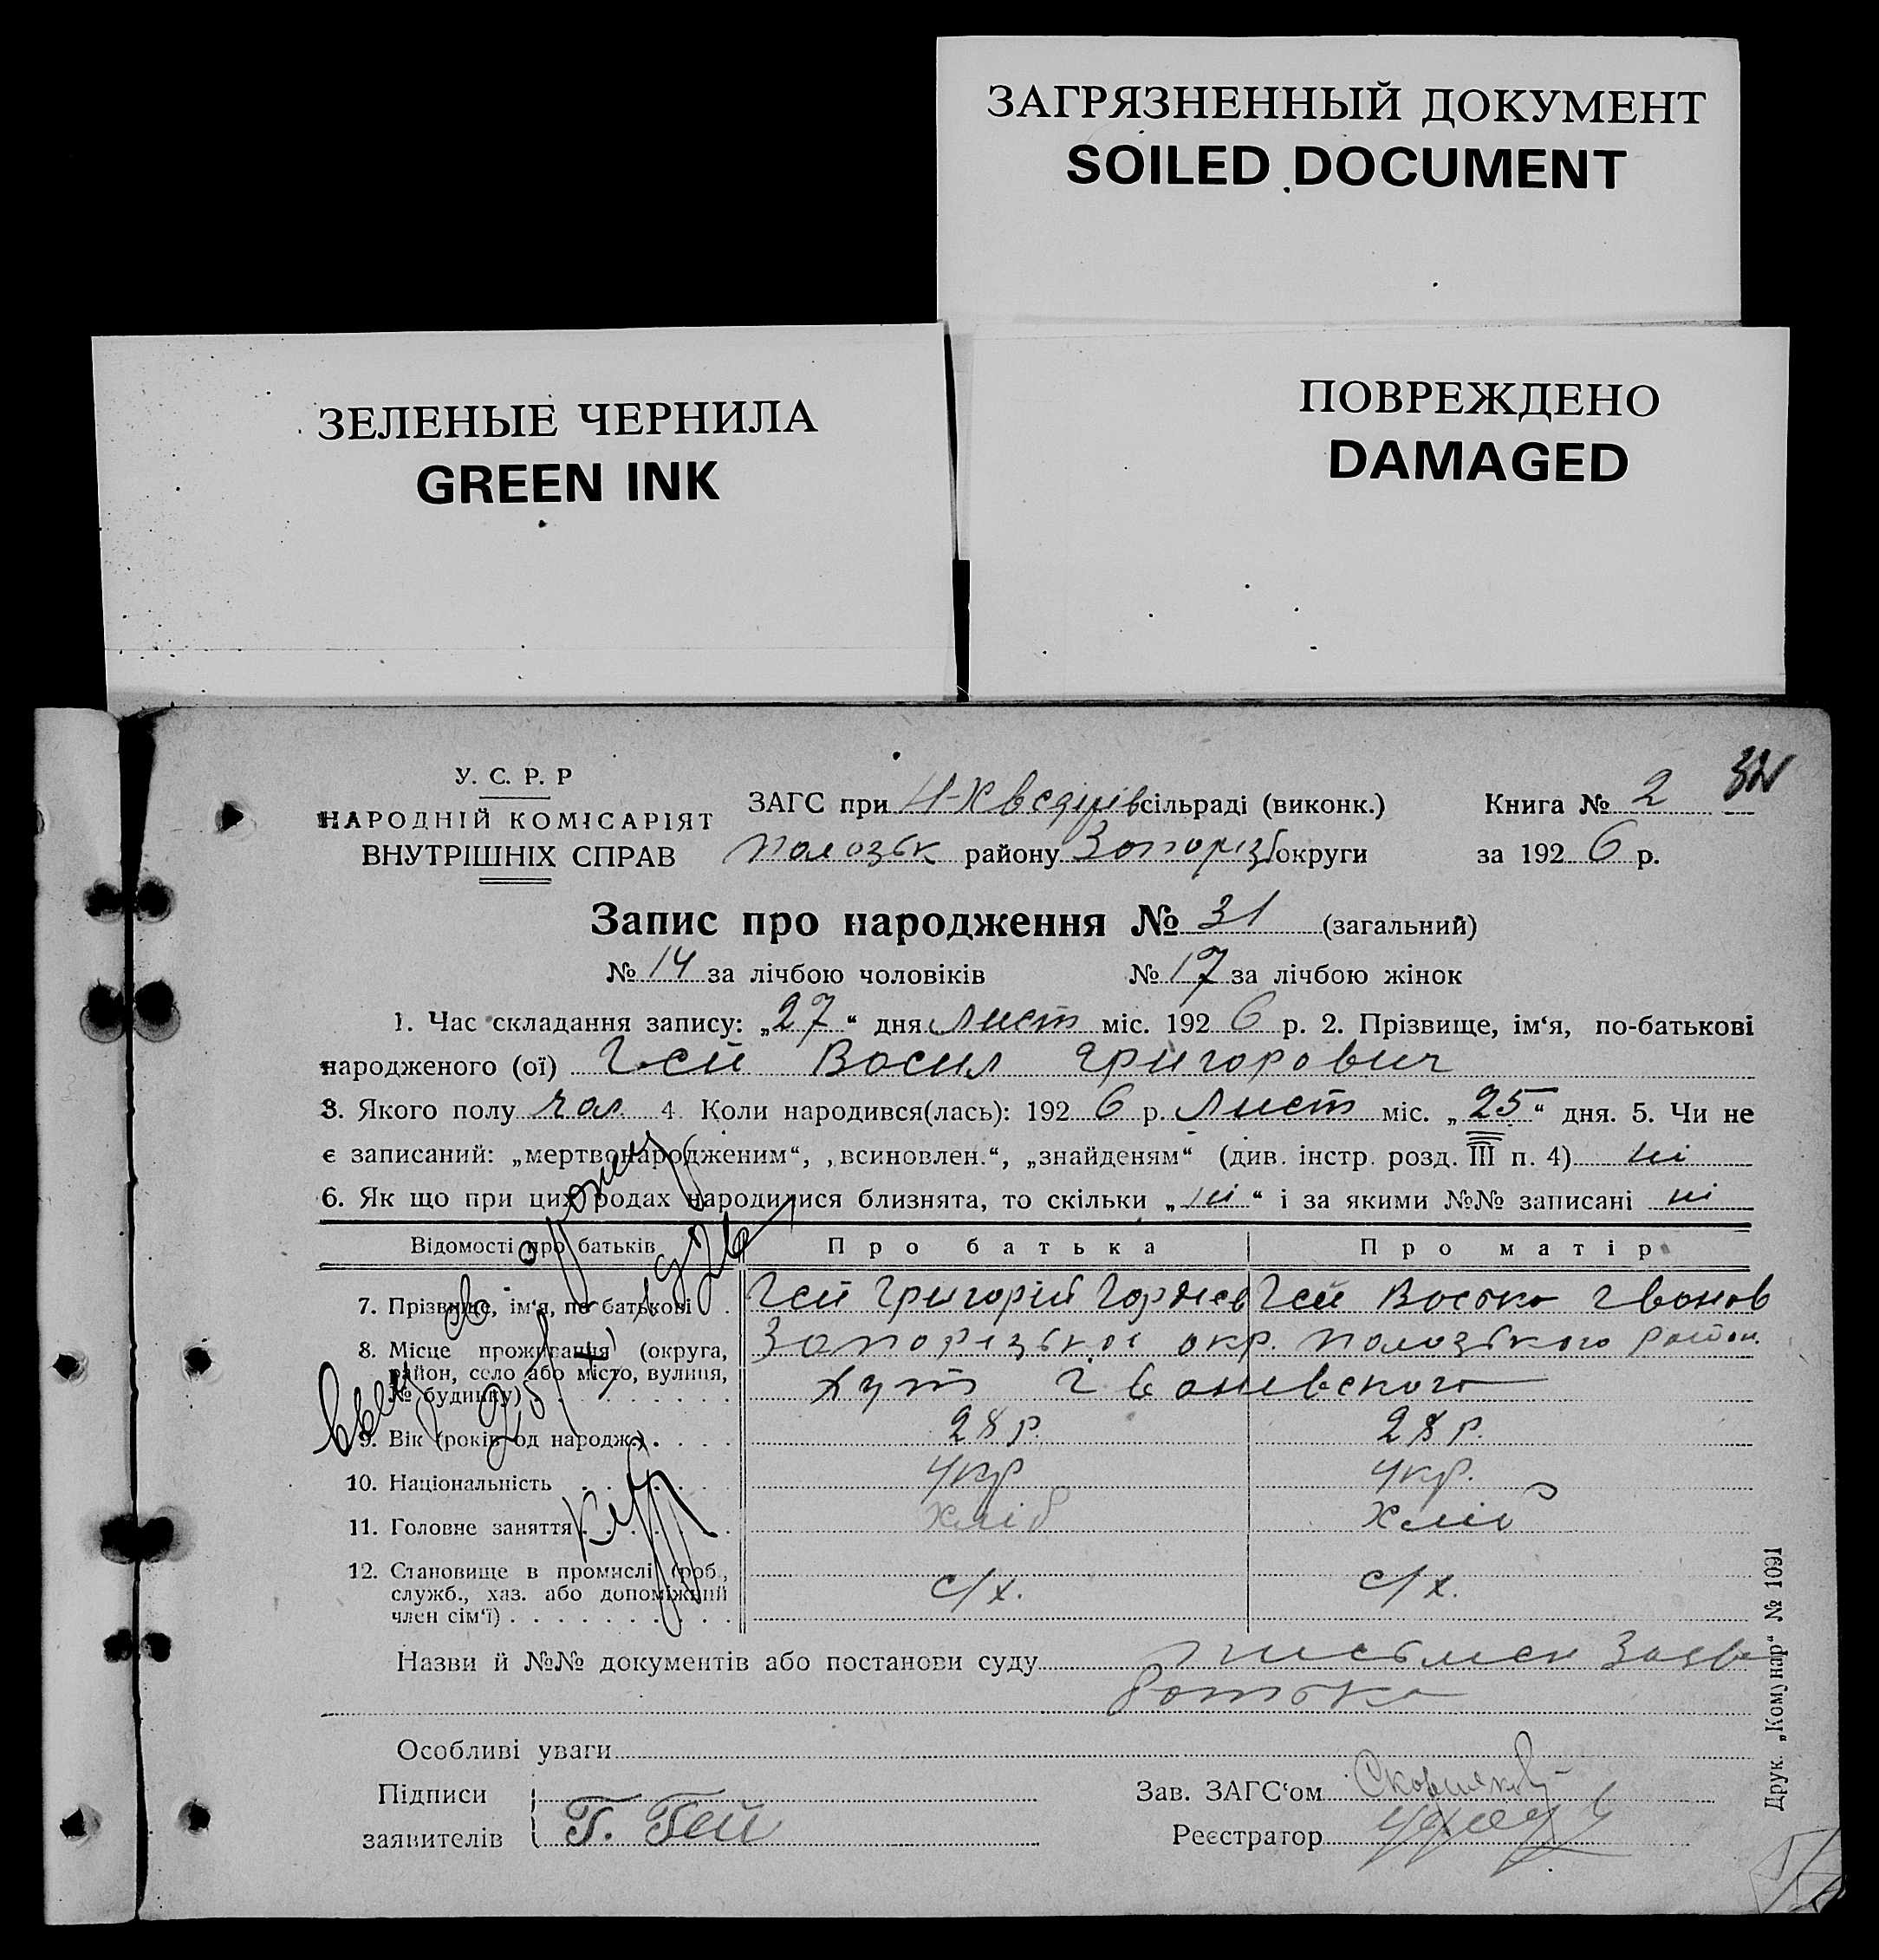 ЗАГРЯЗНЕННЫЙ ДОКУМЕНТ
SOILED DOCUMENT
ЗЕЛЕНЫЕ ЧЕРНИЛА
GREEN INK
ПОВРЕЖДЕНО
DAMAGED
У. С. Р. Р
НАРОДНІЙ КОМІСАРІЯТ
ВНУТРІШНІХ СПРАВ
ЗАГС при сільраді (виконк.)
Полозьк району Запорізь округи
Книга № 2
за 1926 р.
32
Запис про народження № 31 (загальний)
№ 14 за лічбою чоловіків № 17 за лічбою жінок
1. Час складання запису: „27“ дня лист міс. 1926 р. 2. Прізвище, ім‘я, по-батькові
народженого (ої) Гей Васил Григорович
3. Якого полу чол 4. Коли народився(лась): 1926 р. лист міс. „25“ дня. 5. Чи не
є записаний: „мертвонародженим“, „всиновлен.“, „знайденям“ (див. інстр. розд. III п. 4) ні
6. Як що при цих родах народилися близнята, то скільки „ні“ і за якими №№ записані ні
Відомості про батьків Про батька Про матір
7. Прізвище, ім‘я, по батькові . Гей Григорій Гордієв Гей
8. Місце проживання (округа, район, село або місто, вулиця, № будинку) Запорізької окр. Полозького район.
хут
9. Вік (років од народж.) 28 р. 28 р.
10. Національність укр укр.
11. Головне заняття хліб хліб
12. Становище в промислі (роб., служб., хаз. або допоміжний член сім‘ї) с/х. с/х.
Назви й №№ документів або постанови суду
батька
Особливі уваги
Підписи
заявителів Г. Гей
Зав. ЗАГС‘ом
Реєстратор
Друк. „Комунар“ № 1091